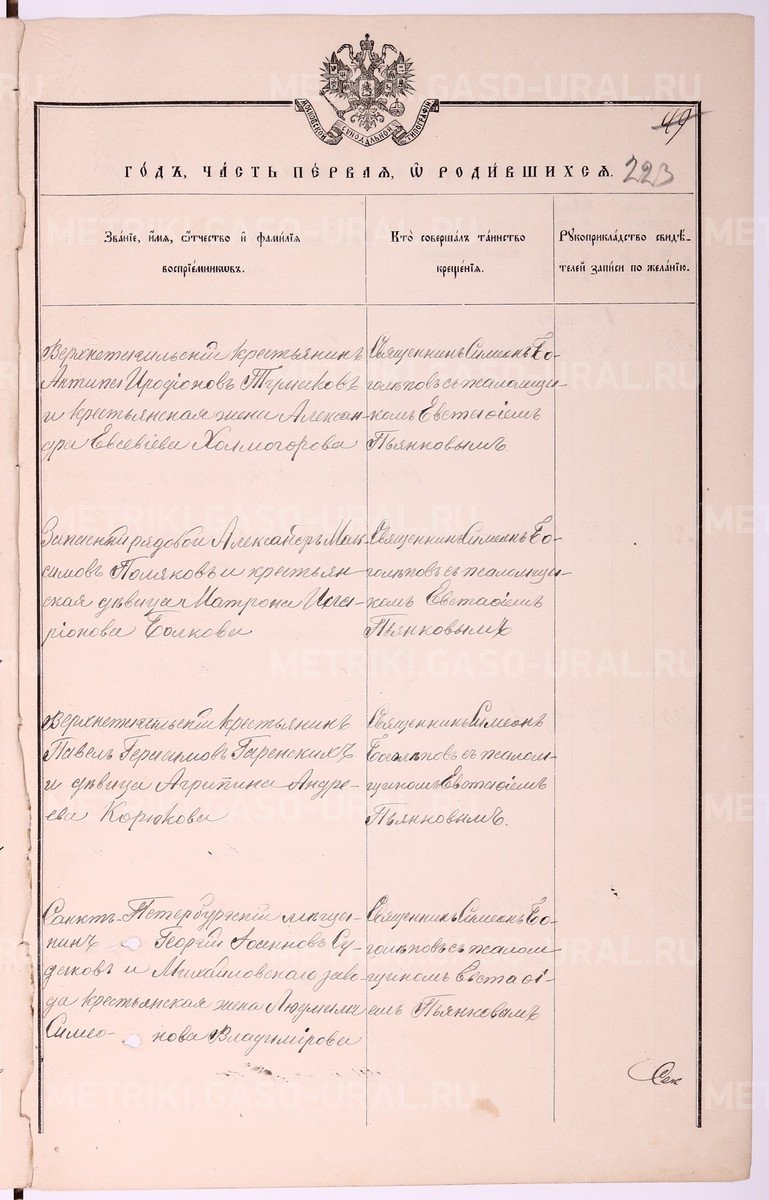 METRIKI.GASO-URAL.RU
МОСКОВСКОЙ СѴНОДАЛЬНОЙ ТИПОГРАФІИ
49
ГО́ДЪ, ЧА́СТЬ ПЕ́РВАЯ, Ѽ РОДИ́ВШИХСЯ. 223
Зва́нїе, и҆́мя, ѻ҆́тчество и҆ фами́лїя
воспрїе́мникѡвъ.
Кто̀ соверша́лъ та́инство
креще́нїя.
Рꙋкоприкла́дство свидѣ́-
телей за́писи по жела́нїю.
Верхнетагильскій крестьянинъ
Антипа Иродіоновъ
и крестьянская жена Алексан-
дра Евсевіева Холмогорова
Священникъ Симеонъ Бо-
голѣповъ съ псаломщи-
комъ Евстафіемъ
Пьянковымъ.
Запасный рядовой Александръ Мак-
симовъ Поляковъ и крестьян
ская дѣвица Матрона Ила-
ріонова Волкова
Священникъ Симеонъ Бо-
голѣповъ съ псаломщи-
комъ Евстафіемъ
Пьянковымъ
Верхнетагильскій крестьянинъ
Павелъ Герасимовъ Гаренскихъ
и дѣвица Агрипина Андре-
ева Корюкова
Священникъ Симеонъ
Боголѣповъ съ псалом-
щикомъ Евстафіемъ
Пьянковымъ.
Санктъ-Петербургскій мѣща-
нинъ Георгій Іосифовъ Су-
даковъ и Михайловскаго заво-
да крестьянская жена Людмила
Симео- нова Владимірова
Священникъ Симеонъ Бо-
голѣповъ съ псалом
щикомъ Евстафі-
емъ Пьянковымъ
Сек